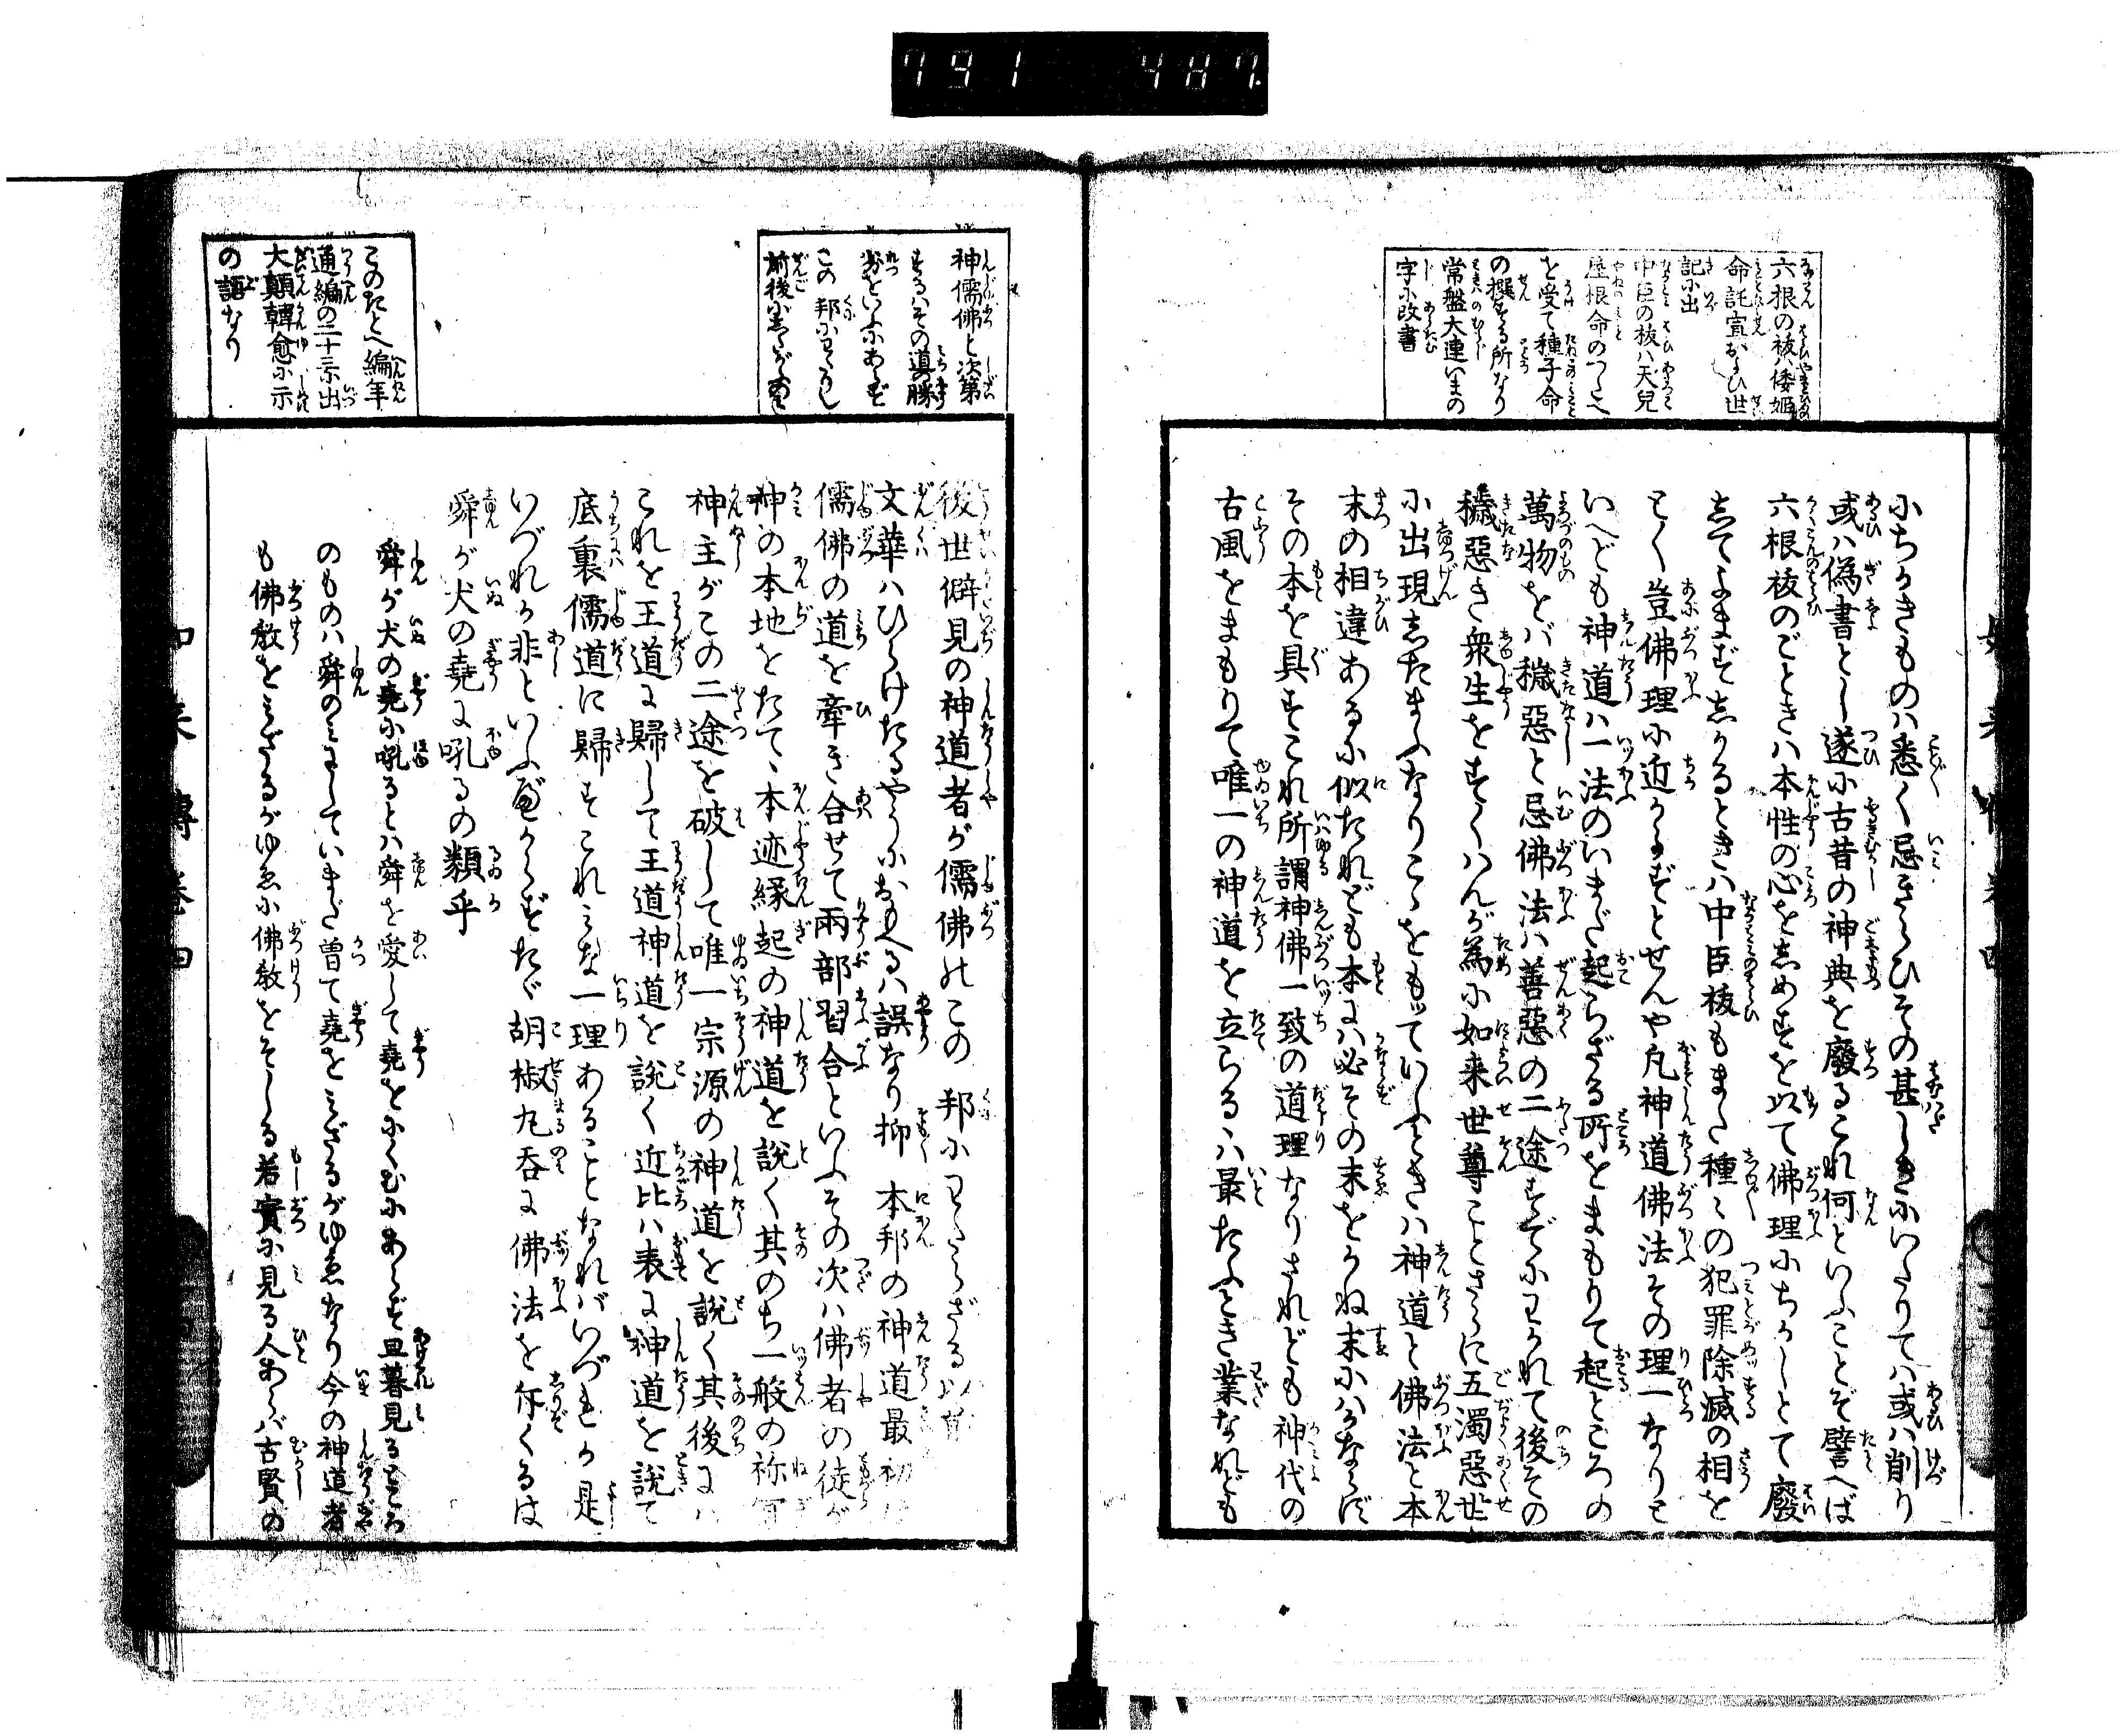 791 487
六根の祓ハ倭姫
命託宣および世
記に出
中臣の祓ハ天兒
屋根命のつたへ
を受て種子命
の撰する所なり
常盤大連いまの
字に改書
にちかきものハ悉く忌きらひその甚しきにいたりてハ或ハ削り
或ハ偽書とし遂に古昔の神典を廢るこれ何といふことぞ譬へば
六根祓のごときハ本性の心を志めすを以て佛理にちかしとて廢
志てよまず志かるときハ中臣祓もまた種〻の犯罪除滅の相を
とく豈佛理に近からずとせんや凡神道佛法その理一なりと
いへども神道ハ一法のいまだ起らざる所をまもりて起ところの
萬物をバ穢惡と忌佛法ハ善惡の二途すでにわかれて後その
穢惡き衆生をすくハんが為に如来世尊ことさらに五濁惡世
に出現志たまふなりこゝをもッていふときハ神道と佛法と本
末の相違あるに似たれども本にハ必その末をかね末にハかならず
その本を具すこれ所謂神佛一致の道理なりされども神代の
古風をまもりて唯一の神道を立らるゝハ最たふとき業なれども
神儒佛と次第
するハその道の勝
劣をいふにあらず
この邦にわたりし
前後にしたがふのミ
後世僻見の神道者が儒佛のこの邦にわたらざる以前
文華ハひらけたるやうにおもへるハ誤なり抑本邦の神道最初ハ
儒佛の道を牽き合せて兩部習合といふその次ハ佛者の徒が
神の本地をたてゝ本迹縁起の神道を説く其のち一般の祢宜
神主がこの二途を破して唯一宗源の神道を説く其後にハ
これを王道に歸して王道神道を説く近比ハ表に神道を説て
底裏儒道に歸すこれミな一理あることなれバいづれか是
いづれか非といふべからずたゞ胡椒丸呑に佛法を斥くるは
舜が犬の堯に吠るの類乎
このたとへ編年
通編の二十三に出
大顛韓愈に示
の語なり
舜が犬の堯に吠るとハ舜を愛して堯をにくむにあらず旦暮見るところ
のものハ舜のミにしていまだ曽て堯をミざるがゆゑなり今の神道者
も佛教をミざるがゆゑに佛教をそしる若實に見る人あらバ古賢の